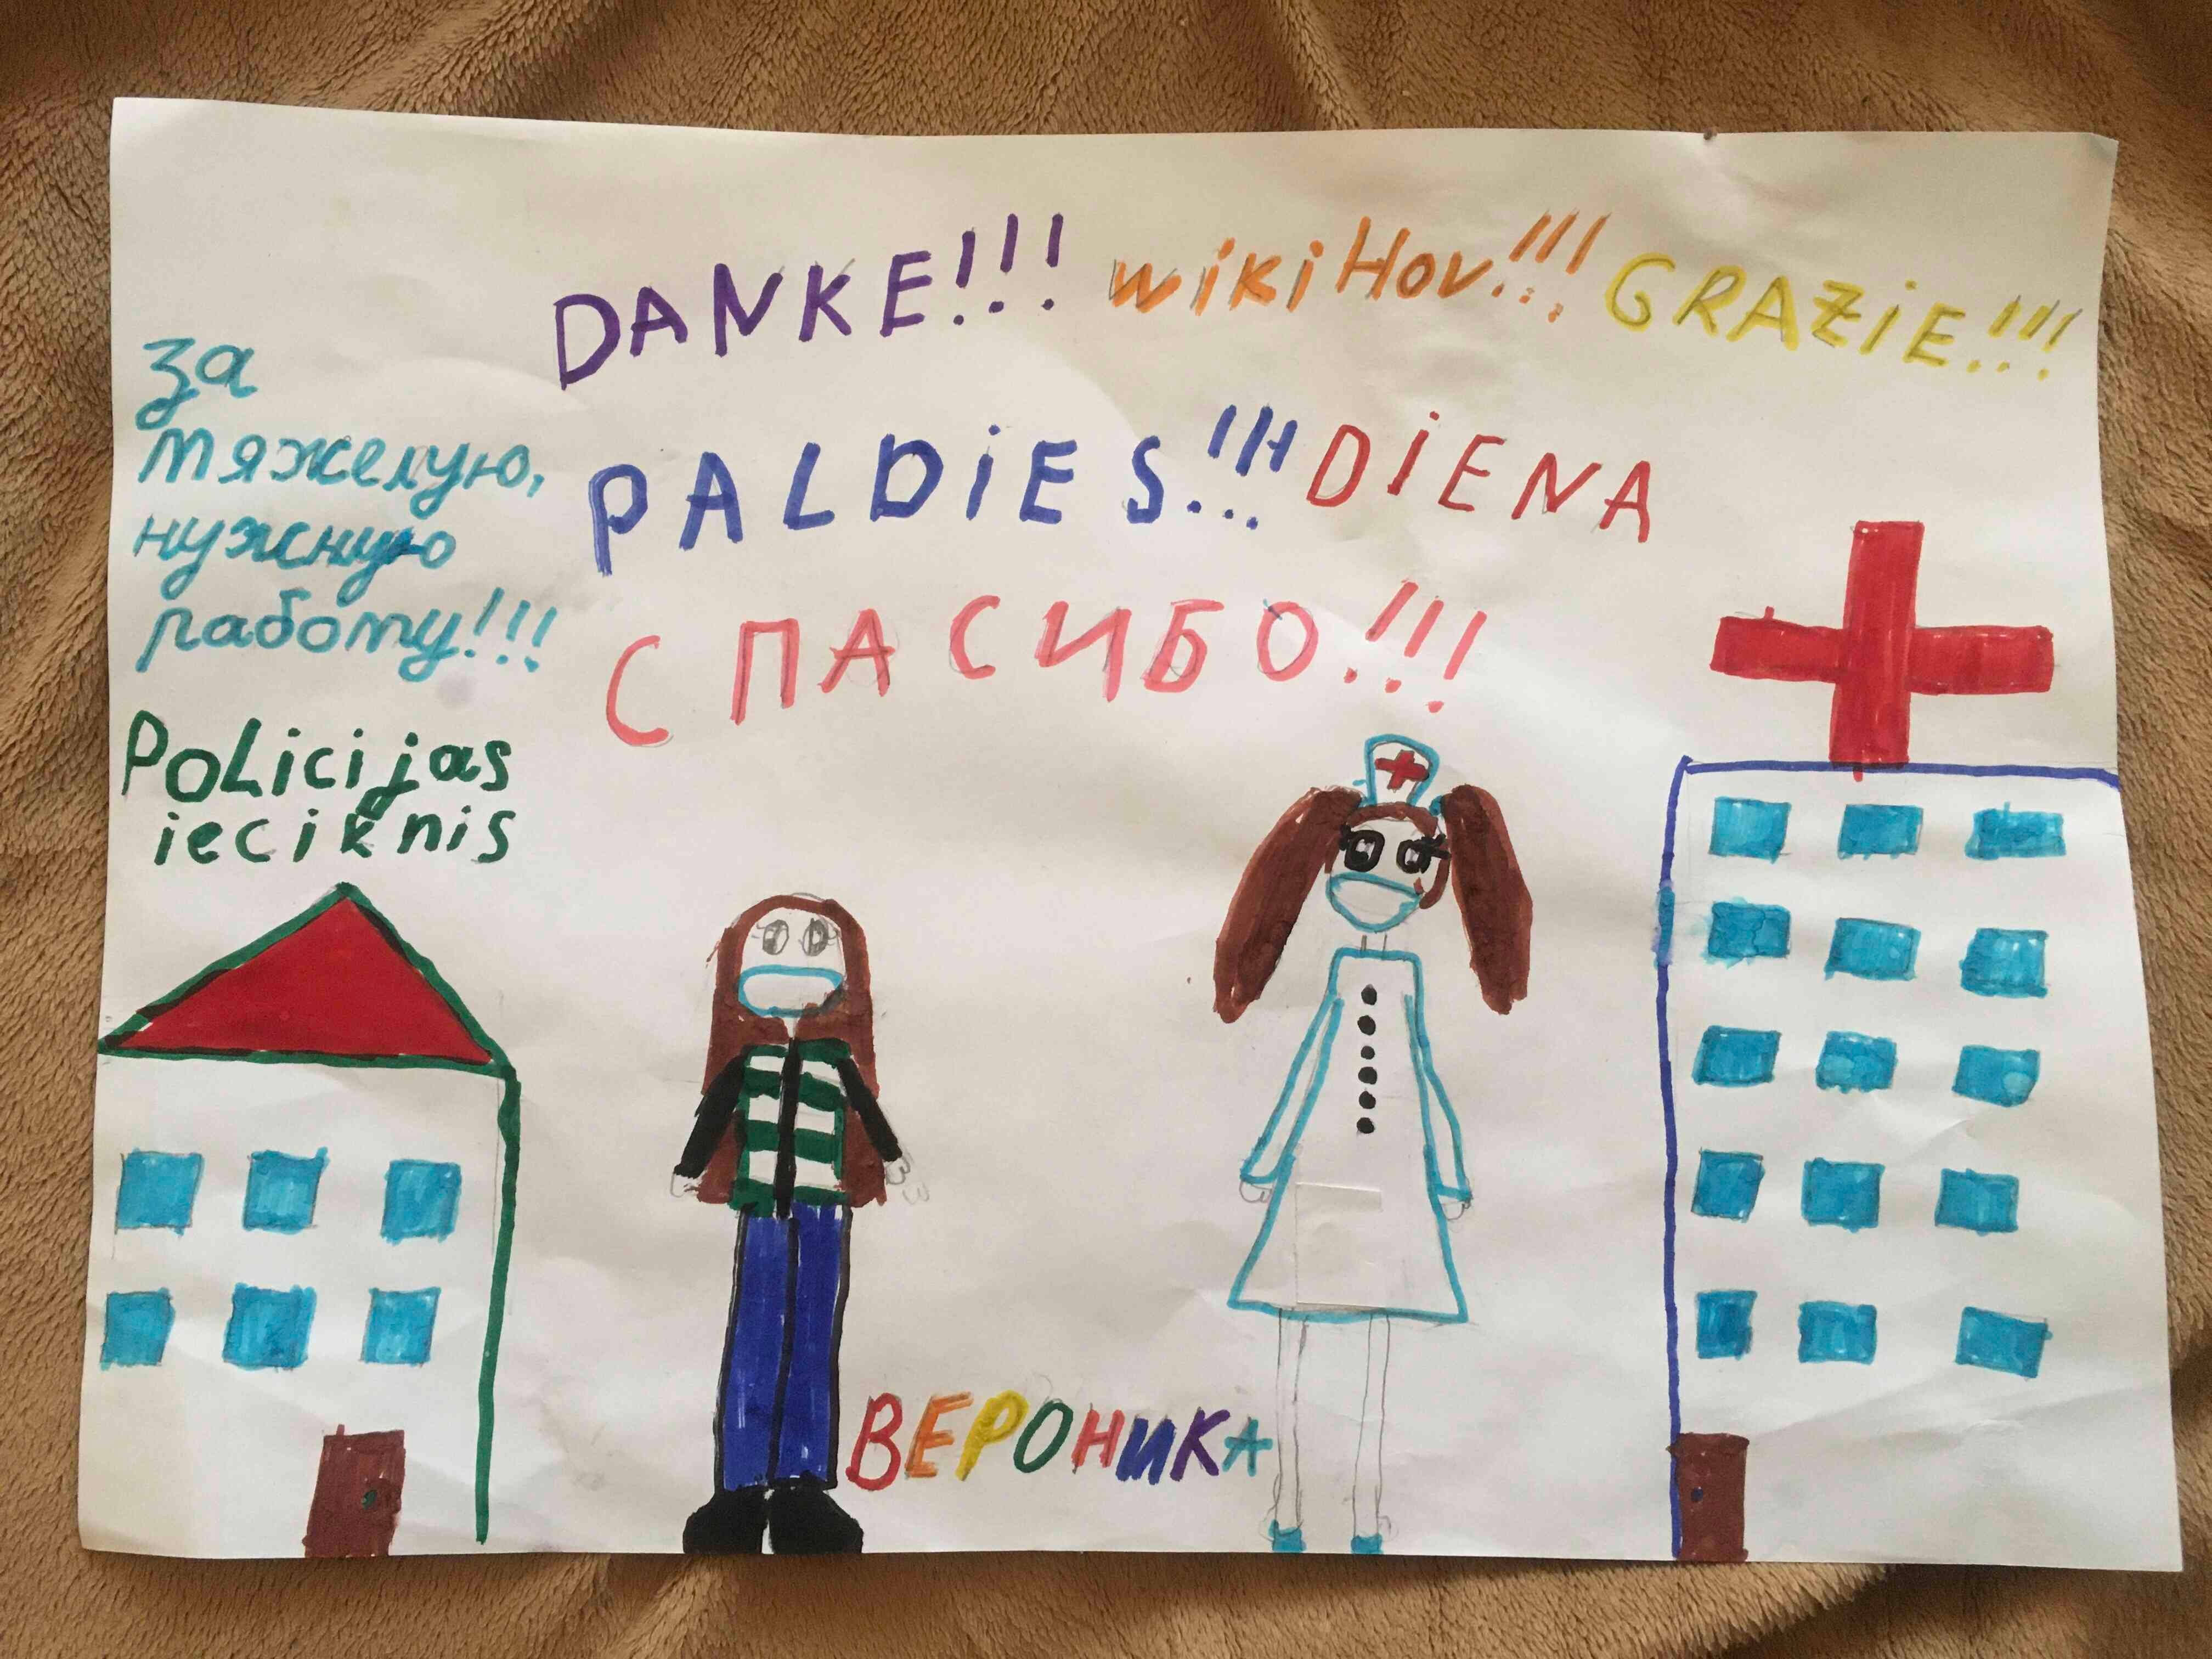 DANKE!!! wikiHov!!! GRAZiE!!!
PALDiES!!! DiENA
СПАСИБО!!!
за
тяжелую,
нужную
работу!!!
PoLicijas
ieciknis
ВЕРОНИКА